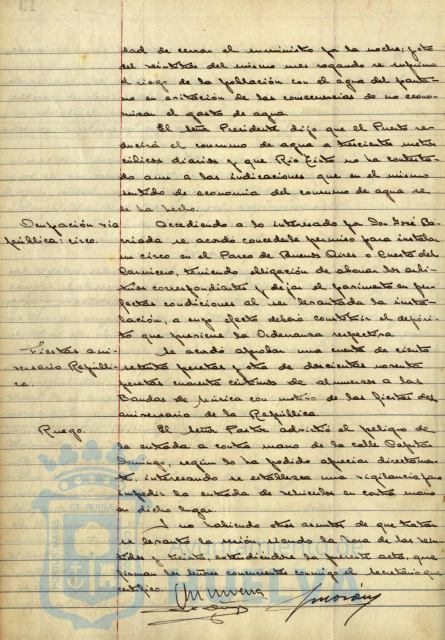 dad de cerrar el suministro por la noche; y otro
del veintitres del mismo mes rogando se suprima
el riego de la población con el agua del panta-
no en evitación de las consecuencias de no econo-
mizar el gasto de agua.
El señor Presidente dijo que el Puerto re-
ducirá el consumo de agua a trescientos metros
cúbicos diarios y que Rio Tinto no ha contesta-
do aun a las indicaciones que en el mismo
sentido de economia del consumo de agua se
le ha hecho.
Ocupación via
pública: circo.
Accediendo a lo interesado por Don José
se acordo concederle permiso para instalar
un circo en el Paseo de Buenos Aires o Cuesta del
Carnicero, teniendo obligación de abonar los arbi-
trios correspondientes y dejar el pavimento en per-
fectas condiciones al ser levantada la insta-
lación, a cuyo efecto deberá constituir el depósi-
to que previene la Ordenanza respectiva.
Fiestas ani-
versario Repúbli-
ca.
Se acordo aprobar una cuenta de ciento
setenta pesetas y otra de doscientas noventa
pesetas cuarenta céntimos de almuerzos a las
Bandas de música con motivo de las fiestas del
aniversario de la República.
Ruego.
El señor Pastor advirtió el peligro de
la entrada a contra mano de la calle
Domingo, según lo ha podido apreciar directamen-
te, interesando se establezca una vigilancia para
impedir la entrada de vehiculos en contra mano
en dicho lugar.
Y no habiendo otros asuntos de que tratar
se levanto la sesión, siendo la hora de las vein-
tidos y treinta, extendiendose la presente acta, que
firman los señores concurrentes conmigo el Secretario que
certifico.
HUELVA